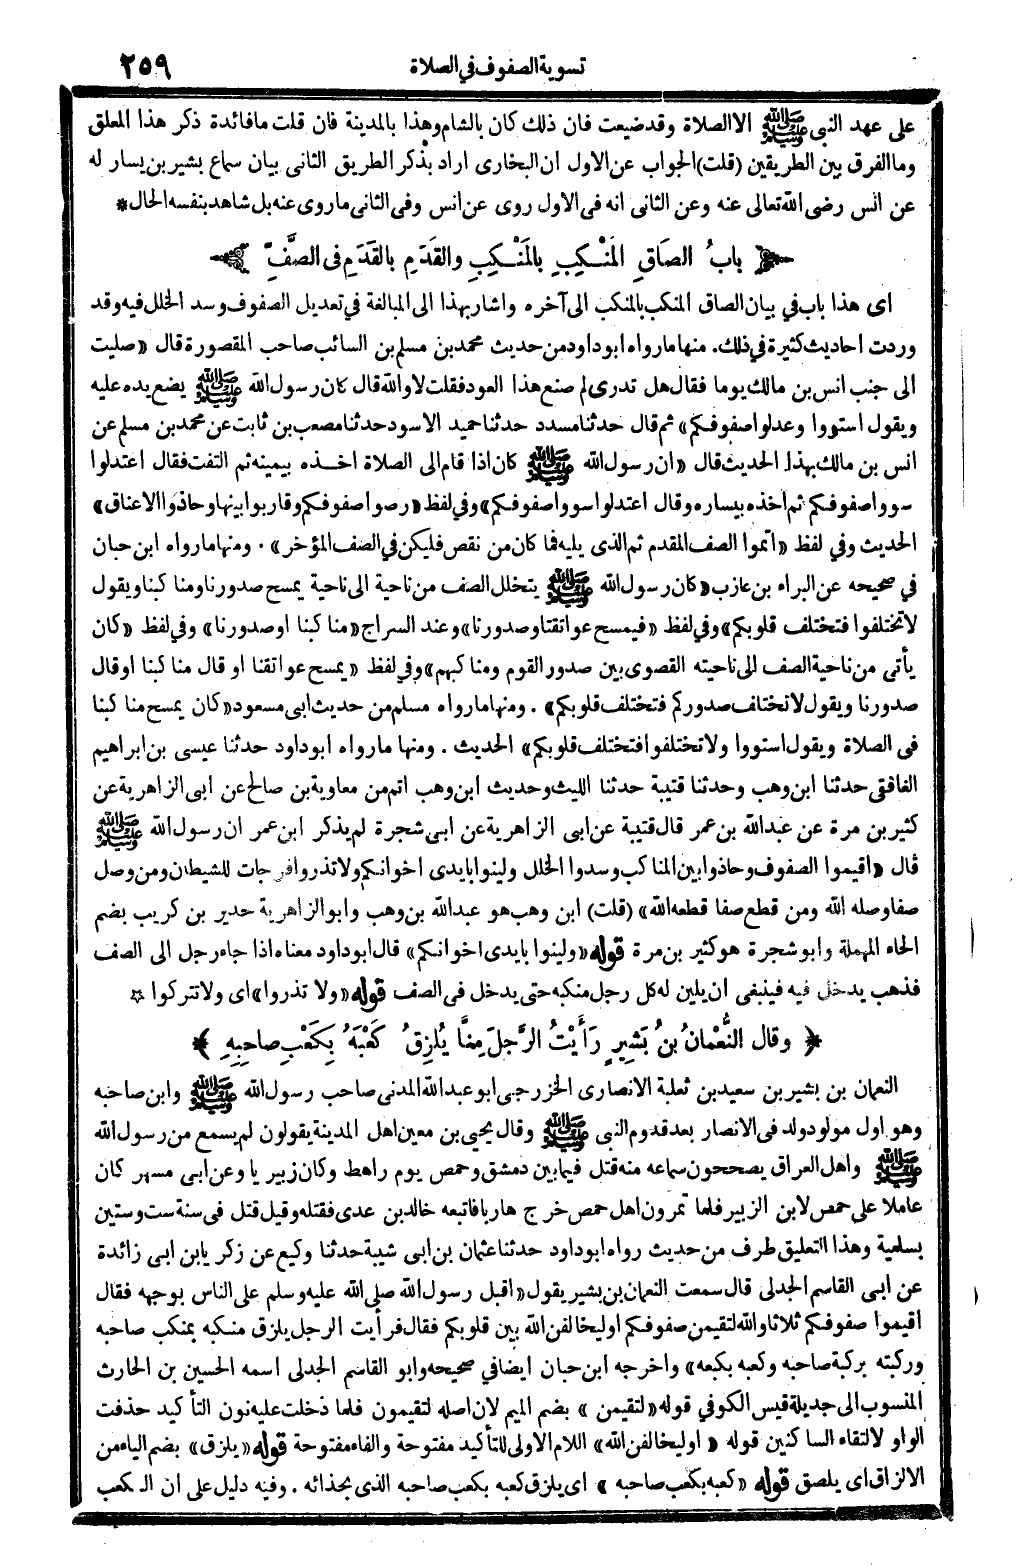 تسوية الصفوف في الصلاة
٢٥٩
على عهد النبى ﷺ الا الصلاة وقد ضيعت فان ذلك كان بالشام وهذا بالمدينة فان قلت ما فائدة ذكر هذا المعلق
وما الفرق بين الطريقين (قلت) الجواب عن الاول ان البخارى اراد بذكر الطريق الثانى بيان سماع بشير بن يسار له
عن انس رضى الله تعالى عنه وعن الثانى انه فى الاول روى عن انس وفى الثانى ما روى عنه بل شاهد بنفسه الحال *
﴿ بابُ الصَاقِ المَنْكِبِ بالمَنْكِبِ والقَدَمِ بالقَدَمِ فى الصَّفِّ ﴾
اى هذا باب في بيان الصاق المنكب بالمنكب الى آخره واشار بهذا الى المبالغة في تعديل الصفوف وسد الخلل فيه وقد
وردت احاديث كثيرة في ذلك. منها ما رواه ابو داود من حديث محمد بن مسلم بن السائب صاحب المقصورة قال « صليت
الى جنب انس بن مالك يوما فقال هل تدرى لم صنع هذا العود فقلت لا والله قال كان رسول الله ﷺ يضع يده عليه
ويقول استووا وعدلوا صفوفكم » ثم قال حدثنا مسدد حدثنا حميد الاسود حدثنا مصعب بن ثابت عن محمد بن مسلم عن
انس بن مالك بهذا الحديث قال « ان رسول الله ﷺ كان اذا قام الى الصلاة اخذه بيمينه ثم التفت فقال اعتدلوا
سووا صفوفكم ثم اخذه بيساره وقال اعتدلوا سووا صفوفكم » وفي لفظ « رصوا صفوفكم وقاربوا بينها وحاذوا الاعناق »
الحديث وفي لفظ « اتموا الصف المقدم ثم الذى يليه فما كان من نقص فليكن في الصف المؤخر » . ومنها ما رواه ابن حبان
في صحيحه عن البراء بن عازب « كان رسول الله ﷺ يتخلل الصف من ناحية الى ناحية يمسح صدورنا ومنا كبنا ويقول
لا تختلفوا فتختلف قلوبكم » وفي لفظ « فيمسح عواتقنا وصدورنا » وعند السراج « منا كبنا او صدورنا » وفي لفظ « كان
يأتى من ناحية الصف الى ناحيته القصوى بين صدور القوم ومنا كبهم » وفي لفظ « يمسح عواتقنا او قال منا كبنا او قال
صدورنا ويقول لا تختلف صدوركم فتختلف قلوبكم » . ومنها ما رواه مسلم من حديث ابى مسعود « كان يمسح منا كبنا
فى الصلاة ويقول استووا ولا تختلفوا فتختلف قلوبكم » الحديث . ومنها ما رواه ابو داود حدثنا عيسى بن ابراهيم
الغافقى حدثنا ابن وهب وحدثنا قتيبة حدثنا الليث وحديث ابن وهب اتم من معاوية بن صالح عن ابى الزاهرية عن
كثير بن مرة عن عبد الله بن عمر قال قتيبة عن ابى الزاهرية عن ابى شجرة لم يذكر ابن عمر ان رسول الله ﷺ
قال « اقيموا الصفوف وحاذوا بين المنا كب وسدوا الخلل ولينوا بايدى اخوانكم ولا تذروا فرجات للشيطان ومن وصل
صفا وصله الله ومن قطع صفا قطعه الله » (قلت) ابن وهب هو عبد الله بن وهب وابو الزاهرية حدير بن كريب بضم
الحاء المهملة وابو شجرة هو كثير بن مرة قوله « ولينوا بايدى اخوانكم » قال ابو داود معناه اذا جاء رجل الى الصف
فذهب يدخل فيه فينبغى ان يلين له كل رجل منكبه حتى يدخل فى الصف قوله « ولا تذروا » اى ولا تتركوا ☆
﴿ وقال النُّعْمانُ بنُ بَشِيرٍ رَأَيْتُ الرَّجلَ مِنَّا يُلزِقُ كَعْبَهُ بِكَعْبِ صاحِبِهِ ﴾
النعمان بن بشير بن سعيد بن ثعلبة الانصارى الخزرجى ابو عبد الله المدنى صاحب رسول الله ﷺ وابن صاحبه
وهو اول مولود ولد فى الانصار بعد قدوم النبى ﷺ وقال يحيى بن معين اهل المدينة يقولون لم يسمع من رسول الله
ﷺ واهل العراق يصححون سماعه منه قتل فيما بين دمشق وحمص يوم راهط وكان زبيريا وعن ابى مسهر كان
عاملا على حمص لابن الزبير فلما تمرون اهل حمص خرج هاربا فاتبعه خالد بن عدى فقتله وقيل قتل فى سنة ست وستين
بسلمية وهذا التعليق طرف من حديث رواه ابو داود حدثنا عثمان بن ابى شيبة حدثنا وكيع عن زكريا بن ابى زائدة
عن ابى القاسم الجدلى قال سمعت النعمان بن بشير يقول « اقبل رسول الله صلى الله عليه وسلم على الناس بوجهه فقال
اقيموا صفوفكم ثلاثا والله لتقيمن صفوفكم او ليخالفن الله بين قلوبكم فقال فرأيت الرجل يلزق منكبه بمنكب صاحبه
وركبته بركبة صاحبه وكعبه بكعبه » واخرجه ابن حبان ايضا في صحيحه وابو القاسم الجدلى اسمه الحسين بن الحارث
المنسوب الى جديلة قيس الكوفي قوله « لتقيمن » بضم الميم لان اصله لتقيمون فلما دخلت عليه نون التأكيد حذفت
الواو لالتقاء الساكنين قوله « او ليخالفن الله » اللام الاولى للتأكيد مفتوحة والفاء مفتوحة قوله « يلزق » بضم الياء من
الالزاق اى يلصق قوله « كعبه بكعب صاحبه » اى يلزق كعبه بكعب صاحبه الذى بحذائه . وفيه دليل على ان الكعب